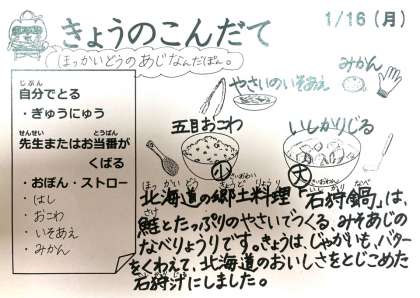 きょうのこんだて
1/16（月）
ほっかいどうのあじなんだぽん。
じぶん
自分でとる
・ぎゅうにゅう
せんせい とうばん
先生またはお当番が
くばる
・おぼん・ストロー
・はし
・おこわ
・いそあえ
・みかん
みかん
やさいのいそあえ
五目おこわ
いしかりじる
小
大
ほっかいどう きょうどりょうり いしかりなべ
北海道の郷土料理「石狩鍋」は、
さけ
鮭とたっぷりのやさいでつくる、みそあじの
なべりょうりです。きょうは、じゃがいも、バター
をくわえて、北海道のおいしさをとじこめた
石狩汁にしました。